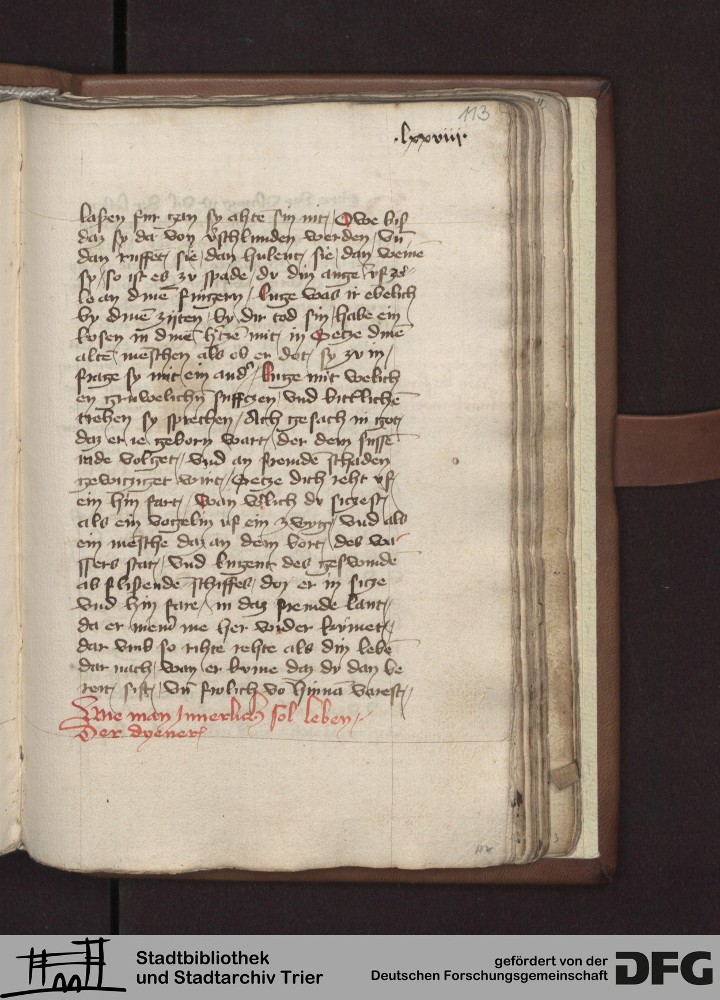 113
·lxxviii·
laßen fur gan sy ahte sin nit / Owe biß
daz sy da von vˢschlunden werden / vn̄
dan ruffet / sie / dan hulent / sie / dan weinē
sy / so ist es zu spade / du din auge / vf
le an dinē fingern / luge was ir
by dinē zijten / by dir tod sin / habe ein
kosen in dinē htzē mit / in Setze dinē
altē menschen als ob er dot / sy zu in /
frage sy mit ein andˢ / Luge mit welich
en gruwelichn̄ suffczen / vnd bitlichē
trehen sy sprechen / Ach gesach in got
daz er ie geborn wart / der dem sussē
rade volget / vnd an fremde schaden
gewiziget wirt / Setze dich reht vf
ein hin fart / wan vˢlich du siczest
als ein vogelin vf ein zwyg / vnd als
ein mēsche daz an dem bort / des wa
ssers stat / vnd lugent des geswinde
ab flißende schiffes / daz er in sicze
vnd hin fare / in daz fremde lant /
da er me her wider kumet /
dar vmb so rihte rehte als din lebē
dar nach / wan er kume daz du dan be
reit / sist / vn̄ frolich vō hinnā varest /
Wie man Innerlich sol leben /
Der dyener
Stadtbibliothek
und Stadtarchiv Trier
gefördert von der
Deutschen Forschungsgemeinschaft
DFG